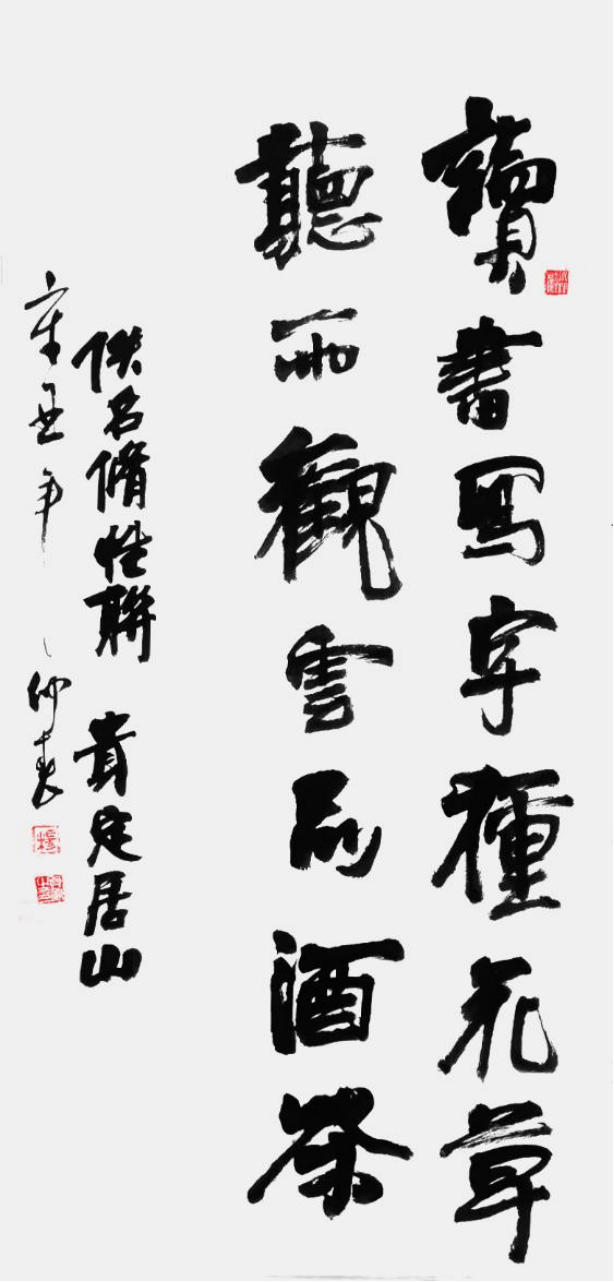 讀書寫字種花草
聽雨觀雲品酒茶
佚名脩性聯 居山
辛丑年 仲春